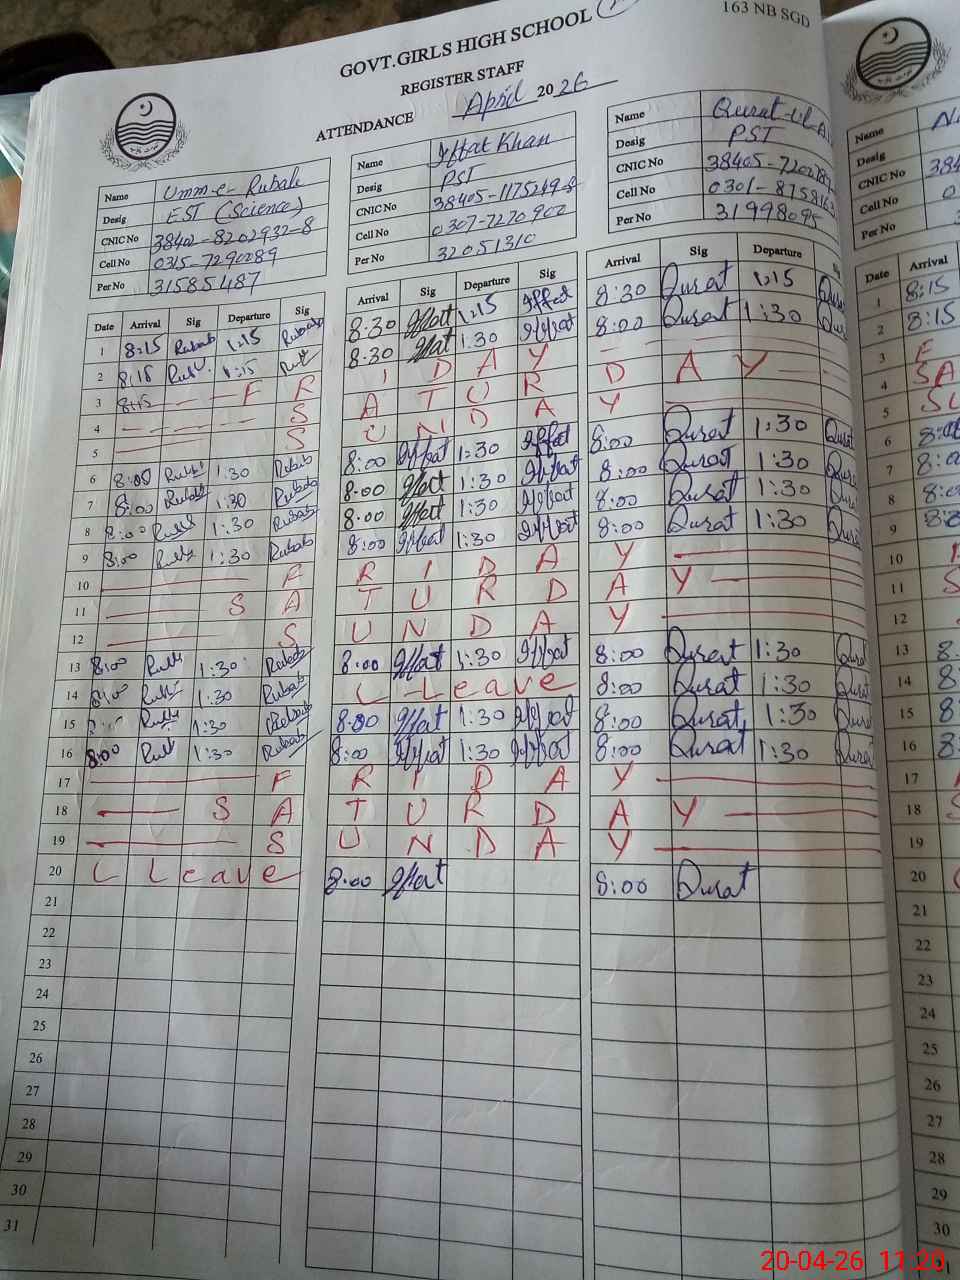 163 NB SGD
GOVT.GIRLS HIGH SCHOOL
REGISTER STAFF
ATTENDANCE April 2026
Name Umm-e- Rubab
Desig EST (Science)
CNIC No 38402-8202932-8
Cell No 0315-7290089
Per No 31585487
Name Iffat Khan
Desig PST
CNIC No 38405-1175249-8
Cell No 0307-7270900
Per No 32051310
Name Qurat-ul-A
Desig PST
CNIC No 38405-7202
Cell No 0301-875
Per No 31998095
Name
Desig
CNIC No 384
Cell No 0
Per No 3
Date Arrival Sig Departure Sig Arrival Sig Departure Sig Arrival Sig Departure Sig
1 8:15 Rubab 1:15 Rubab 8:30 Iffat 1:15 Iffat 8:30 Qurat 1:15 Qura
2 8:15 Rub 1:15 8:30 Iffat 1:30 Iffat 8:00 Qurat 1:30 Qur
3 8:15 F R I D A Y
4 S A T U R D A Y
5 S U N D A Y
6 8:00 Rubab 1:30 Rubab 8:00 Iffat 1:30 Iffat 8:00 Qurat 1:30 Qurat
7 8:00 Rubab 1:30 Rubab 8:00 Iffat 1:30 Iffat 8:00 Qurat 1:30 Qura
8 8:00 Rubab 1:30 Rubab 8:00 Iffat 1:30 Iffat 8:00 Qurat 1:30 Qura
9 8:00 Rub 1:30 Rubab 8:00 Iffat 1:30 Iffat 8:00 Qurat 1:30 Qura
10 F R I D A Y
11 S A T U R D A Y
12 S U N D A Y
13 8:00 Rub 1:30 Rubab 8:00 Iffat 1:30 Iffat 8:00 Qurat 1:30 Qurat
14 8:00 Rub 1:30 Rubab L Leave 8:00 Qurat 1:30 Qura
15 Rub 1:30 Rubab 8:00 Iffat 1:30 Iffat 8:00 Qurat 1:30 Qura
16 8:00 Rub 1:30 Rubab 8:00 Iffat 1:30 Iffat 8:00 Qurat 1:30 Qurat
17 F R I D A Y
18 S A T U R D A Y
19 S U N D A Y
20 L Leave 8:00 Iffat 8:00 Qurat
21
22
23
24
25
26
27
28
29
30
31
Date Arrival
1 8:15
2 8:15
3 F
4 SA
5 SU
6 8:00
7 8:0
8 8:0
9 8:
10
11 S
12
13 8.
14 8
15 8
16 8:
17
18 S
19
20
21
22
23
24
25
26
27
28
29
30
20-04-26 11:20